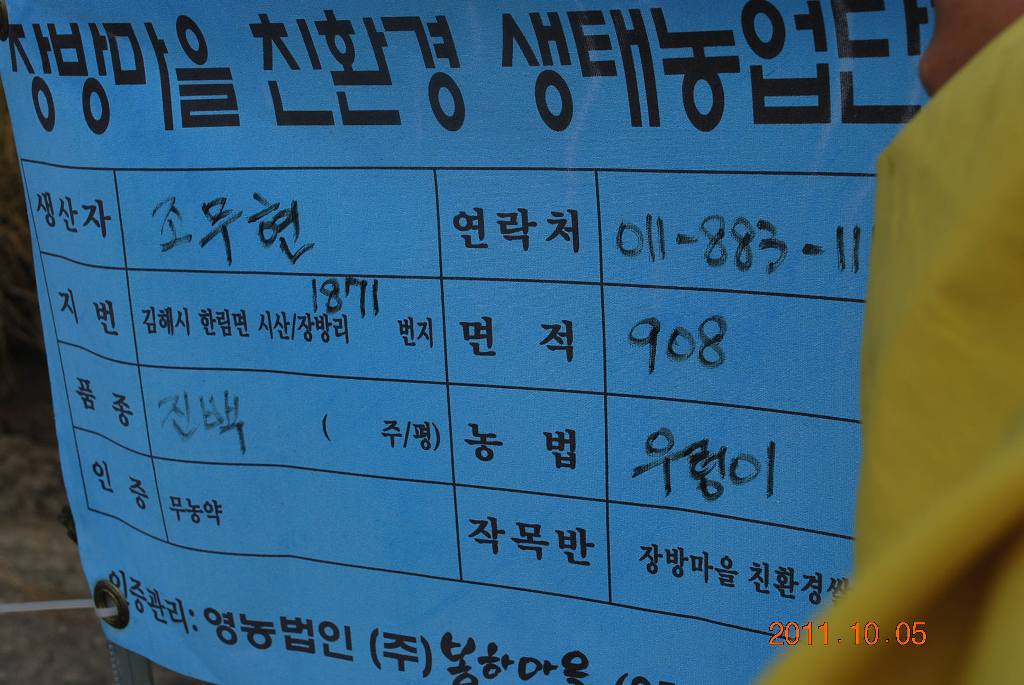 장방마을 친환경 생태농업단
생산자 조무현 연락처 011-883-11
지번 김해시 한림면 시산/장방리 1871 번지 면적 908
품종 진백 ( 주/평) 농법 우렁이
인증 무농약 작목반 장방마을 친환경쌀
인증관리: 영농법인 (주)봉하마을
2011.10.05